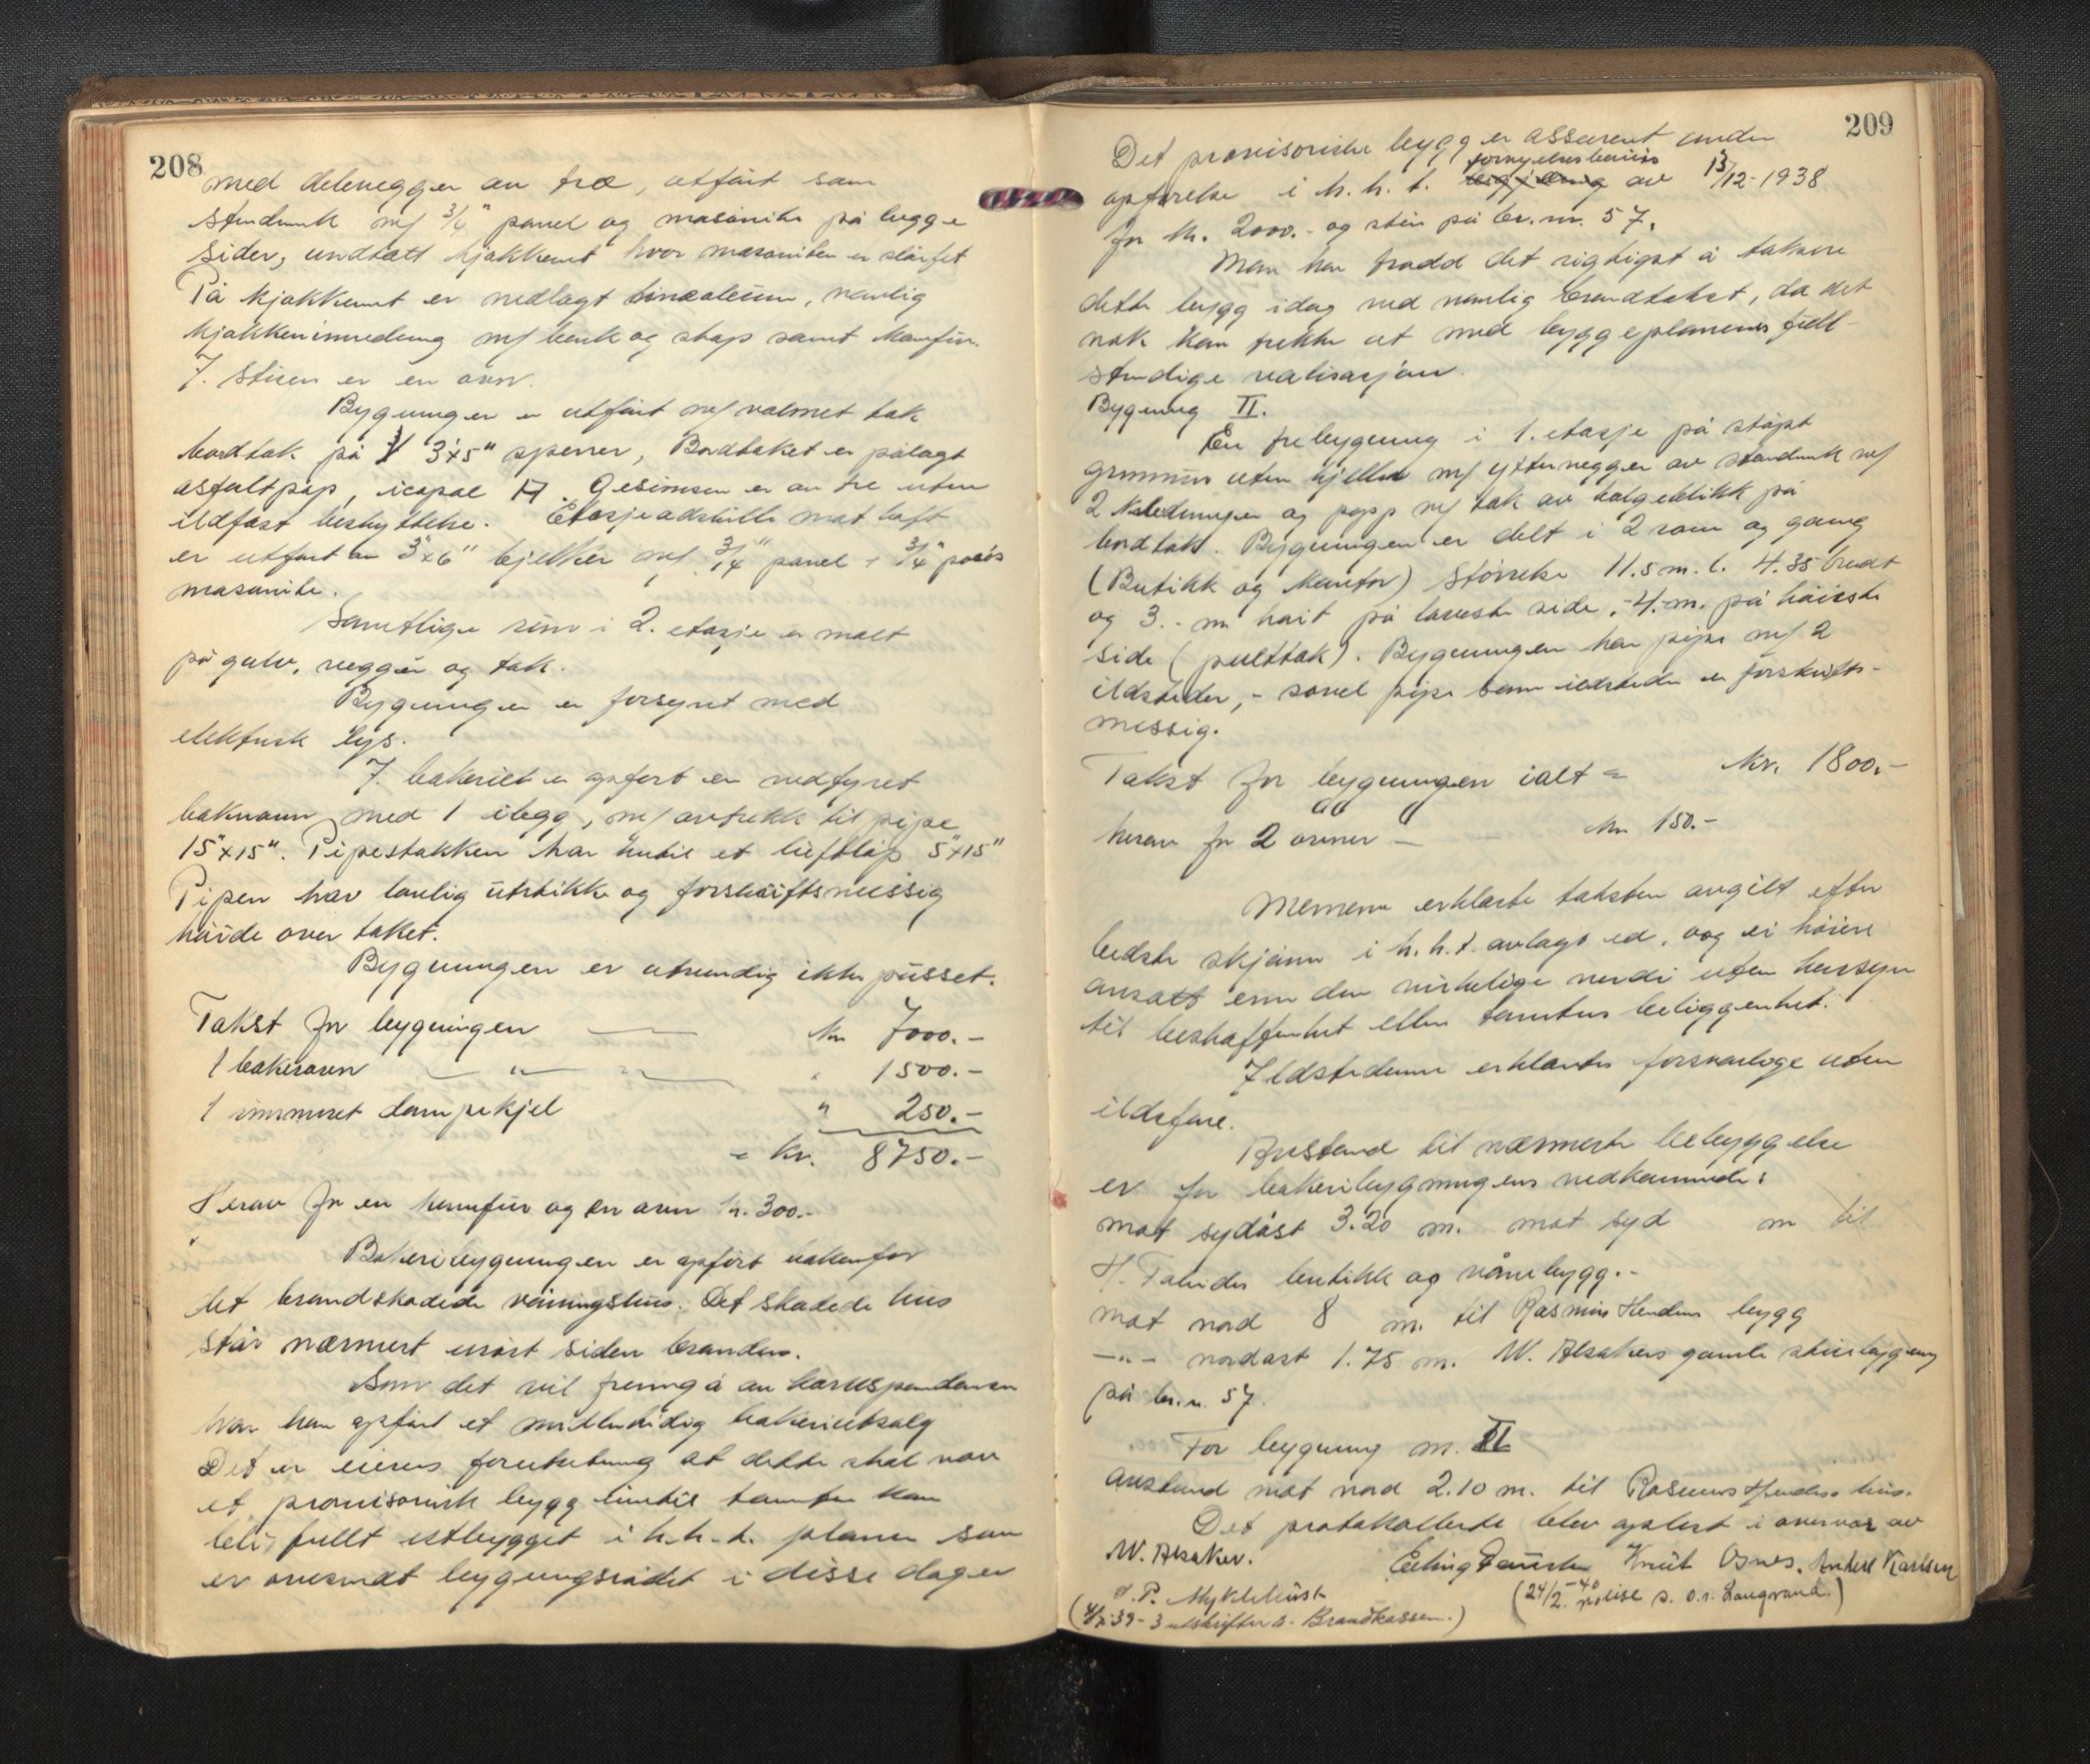 208
med delevegger av træ, utført som
stenderverk m/ 3/4" panel og masonite på begge
sider, undtatt kjøkkenet hvor masoniten er sløifet
På kjøkkenet er nedlagt linoleum, vanlig
kjøkkeninnredning m/ benk og skap samt komfur.
I. stuen er en ovn.
Bygningen er utført m/ valmet tak
bordtak på 3"x5" sperrer, Bordtaket er pålagt
asfaltpap, icopal A. Gesimsen er av tre uten
ildfast beskyttelse. Etasjeadskille mot loft
er utført av 3"x6" bjelker m/ 3/4" panel + 3/4" porøs
masonite.
Samtlige rum i 2. etasje er malt
på gulv, vegger og tak.
Bygningen er forsynt med
elektrisk lys.
I. bakeriet er opført en vedfyret
bakerovn med 1 ilegg, m/ avtrekk til pipe
15"x15". Pipestokken har hertil et luftløp 5"x15"
Pipen har lovlig utstikk og forskriftsmessig
høide over taket.
Bygningen er utvendig ikke pusset.
Takst for bygningen — kr 7000.-
1 bakerovn — " — " 1500.-
1 innmuret dampkjel " 250.-
= kr. 8750.-
Herav for en komfur og en ovn kr. 300.-
Bakeribygningen er opført bakenfor
det brandskadede våningshus. Det skadede hus
står nærmest urørt siden branden.
Som det vil fremgå av korrespondansen
har han opført et midlertidig bakeriutsalg
Det er eierens forutsetning at dette skal være
et provisorisk bygg inntil tomten kan
bli fullt utbygget i h.h.t. planer som
er oversendt bygningsrådet i disse dager
209
Det provisoriske bygg er assurert under
fornyelsesbevis
opførelse i h.h.t. av 13/12-1938
for kr. 2000.- og står på br.nr. 57.
Man har trodd det rigtigst å taksere
dette bygg idag ved vanlig brandtakst, da det
nok kan trekke ut med byggeplanenes full-
stendige realisasjon.
Bygning II.
En trebygning i 1. etasje på støpt
grunnmur uten kjeller m/ yttervegger av stenderverk m/
2 kledninger og papp m/ tak av bølgeblikk på
bordtak. Bygningen er delt i 2 rom og gang
(Butikk og kontor) Størrelse 11.5 m. l. 4.35 bredt
og 3.- m høit på laveste side, -4.-m. på høieste
side (pulttak). Bygningen har pipe m/ 2
ildsteder, - såvel pipe som ildsteder er forskrifts-
messig.
Takst for bygningen ialt = Kr. 1800.-
herav for 2 ovner — kr 150.-
Mennene erklærte taksten avgitt efter
bedste skjønn i h.h.t. avlagt ed, og ei høiere
ansatt enn den virkelige verdi uten hensyn
til beskaffenhet eller tomtens beliggenhet.
Ildstedene erklærtes forsvarlige uten
ildsfare.
Avstand til nærmeste bebyggelse
er for bakeribygningens vedkommende:
mot sydøst 3.20 m. mot syd m til
butikk og vånebygg.-
mot nord 8 m. til Rasmus Hendens bygg
—"— nordøst 1.75 m. W. Alsakers gamle
på br.n. 57.
For bygning nr. II
avstand mot nord 2.10 m. til Rasmus Hendens hus.
Det protokollerte blev oplest i overvær av
W. Alsaker. Erling Knut Osnes. Karlsen
P. Myklebust (24/2-40 )
(-39- 3 utskrifter s. Brandkassen.)